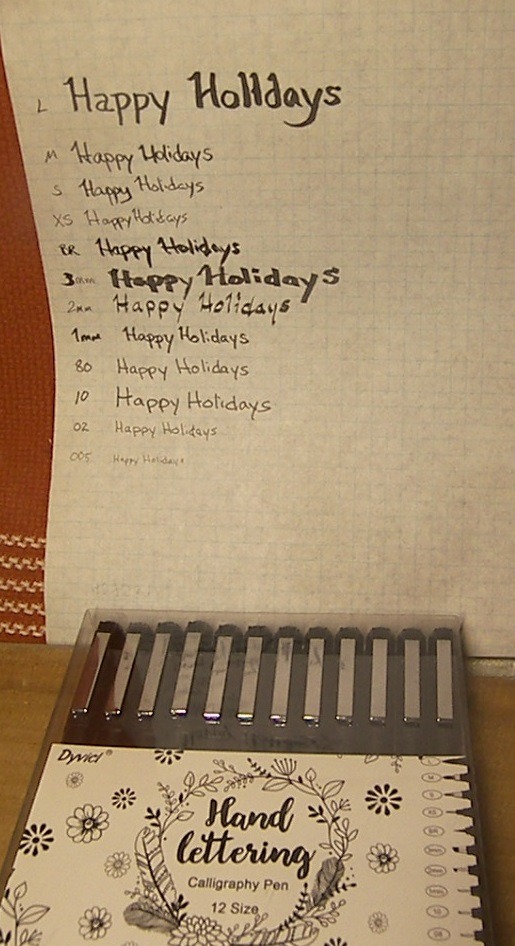 L Happy Holidays
M Happy Holidays
S Happy Holidays
XS Happy Holidays
BR Happy Holidays
3mm Happy Holidays
2mm Happy Holidays
1mm Happy Holidays
80 Happy Holidays
10 Happy Holidays
02 Happy Holidays
005 Happy Holidays
Dyvicl®
Hand
lettering
Calligraphy Pen
12 Size